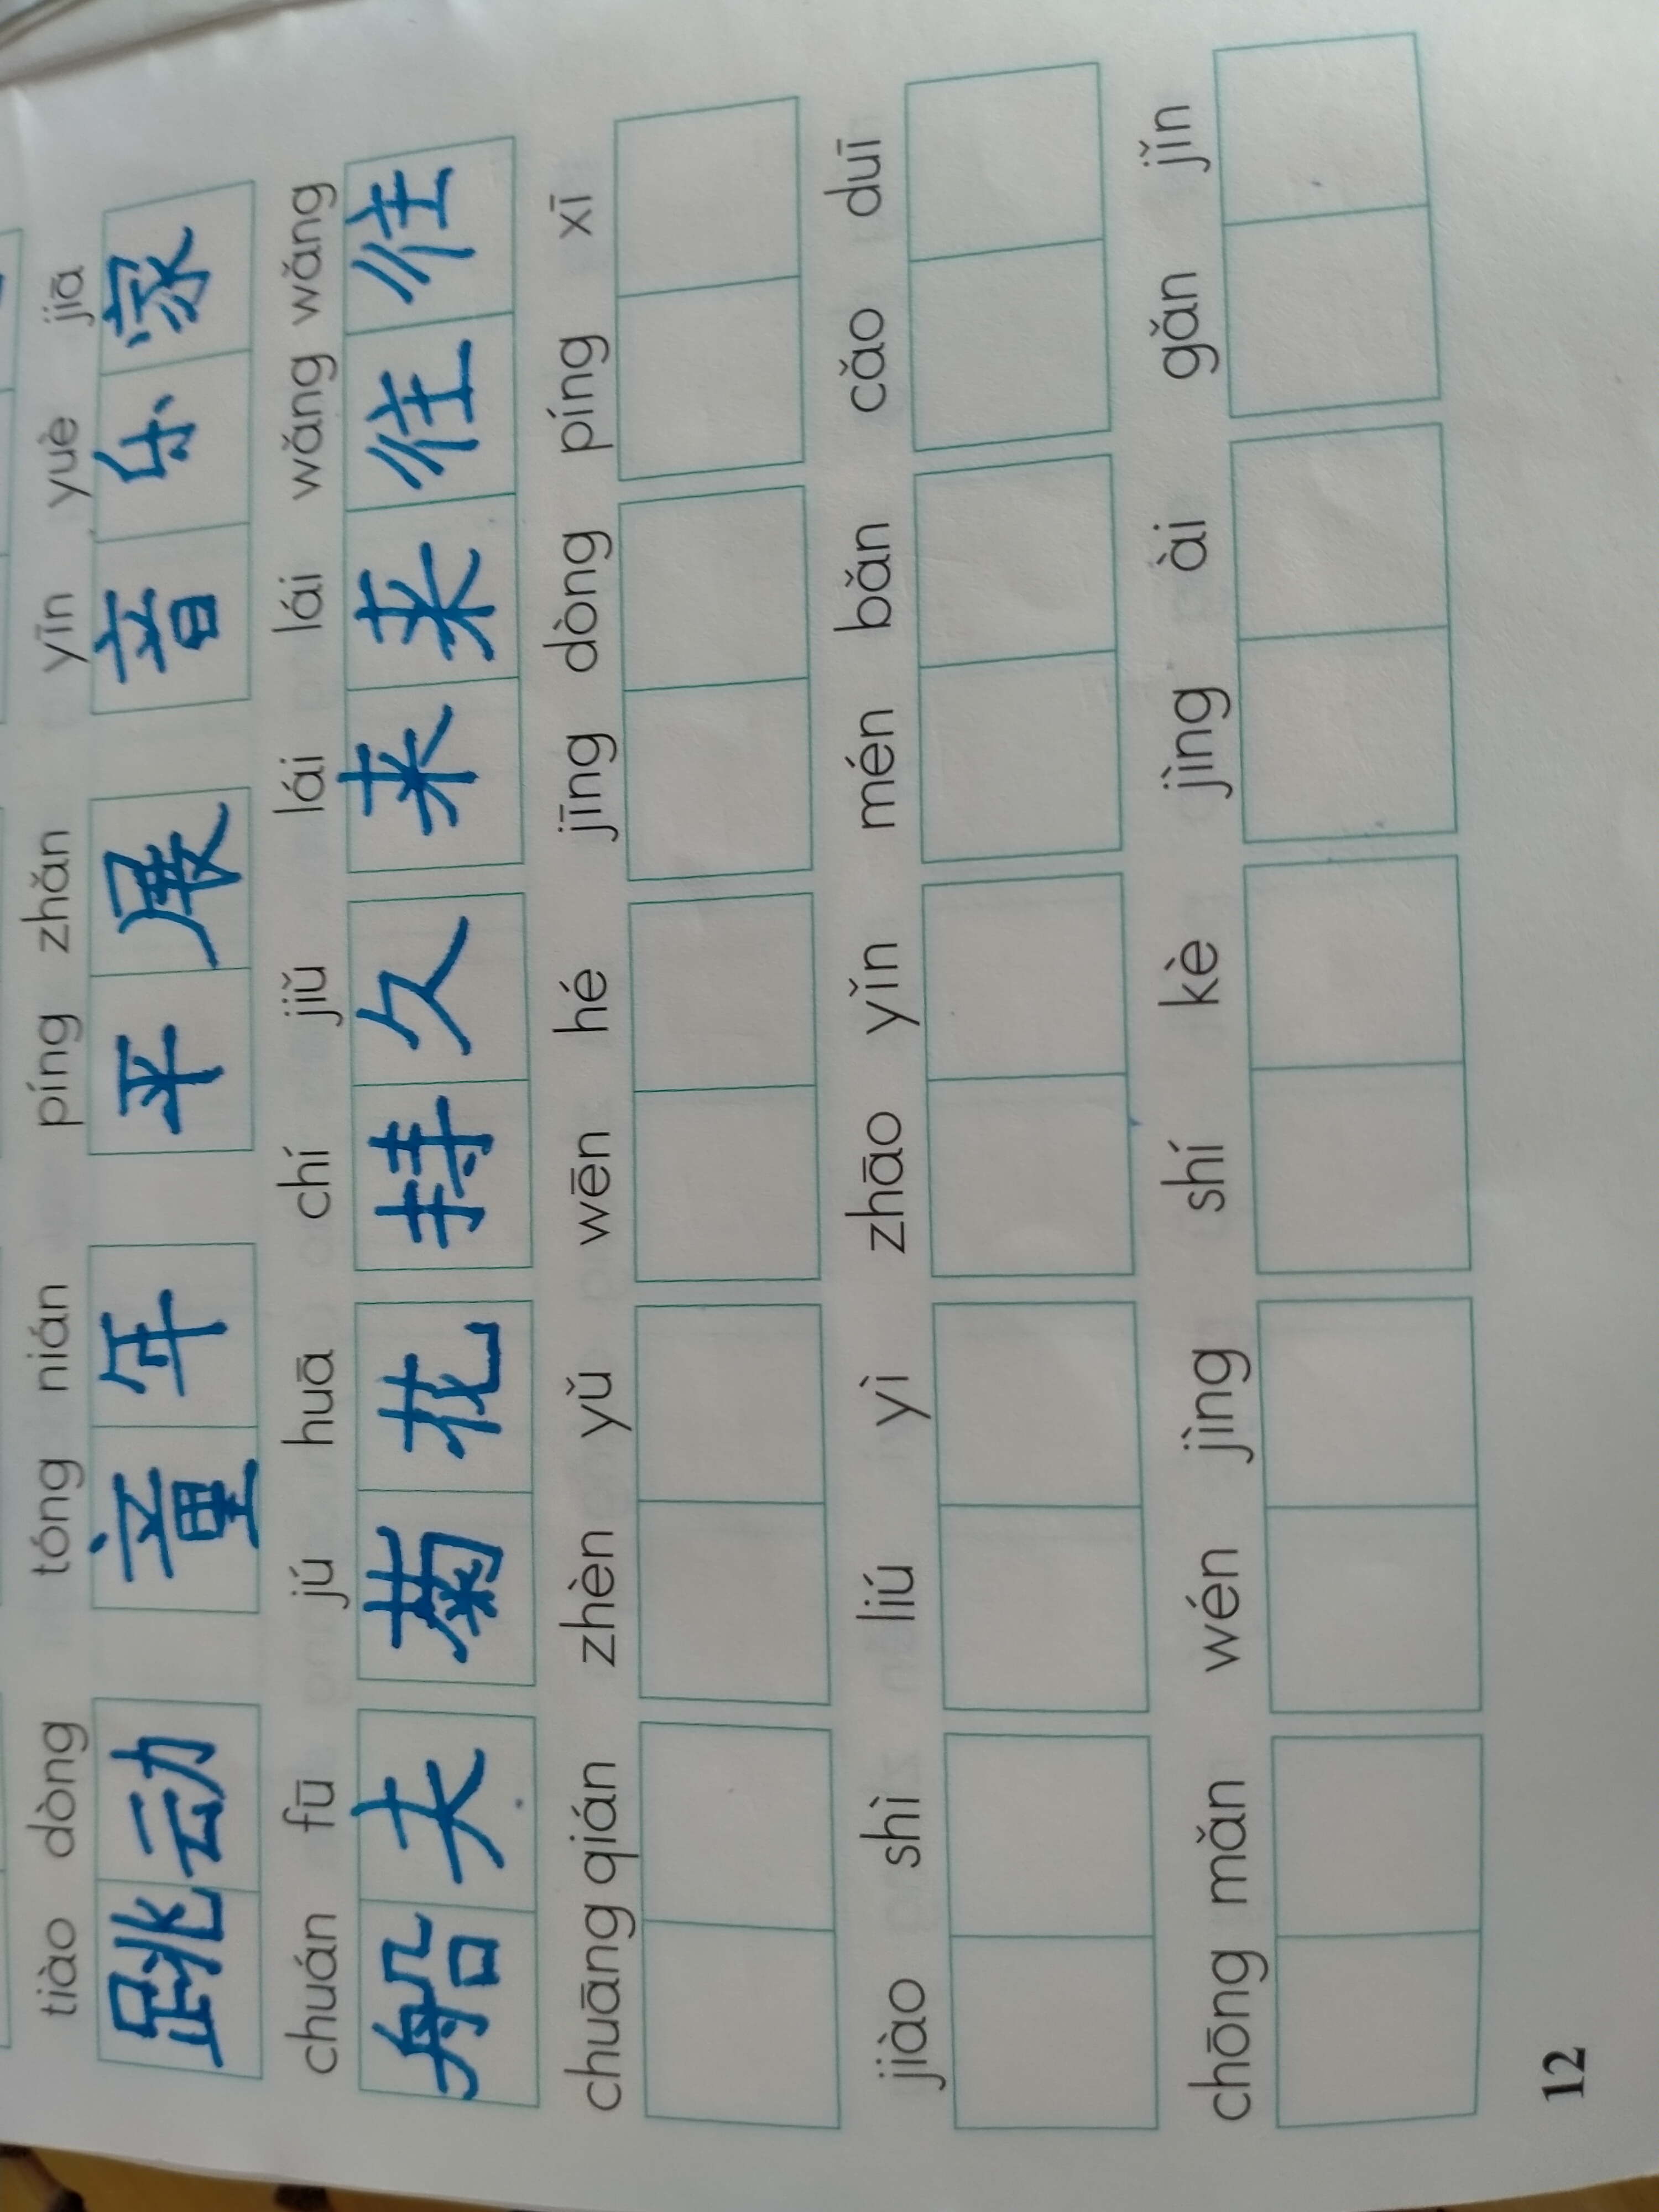 tiào dòng tóng nián píng zhǎn yīn yuè jiā
跳动 童年 平展 音乐家
chuán fū jú huā chí jiǔ lái lái wǎng wǎng
船夫 菊花 持久 来来往往
chuāng qián zhèn yǔ wēn hé jīng dòng píng xī
jiào shì liú yì zhāo yǐn mén bǎn cǎo duī
chōng mǎn wén jìng shí kè jìng ài gǎn jǐn
12